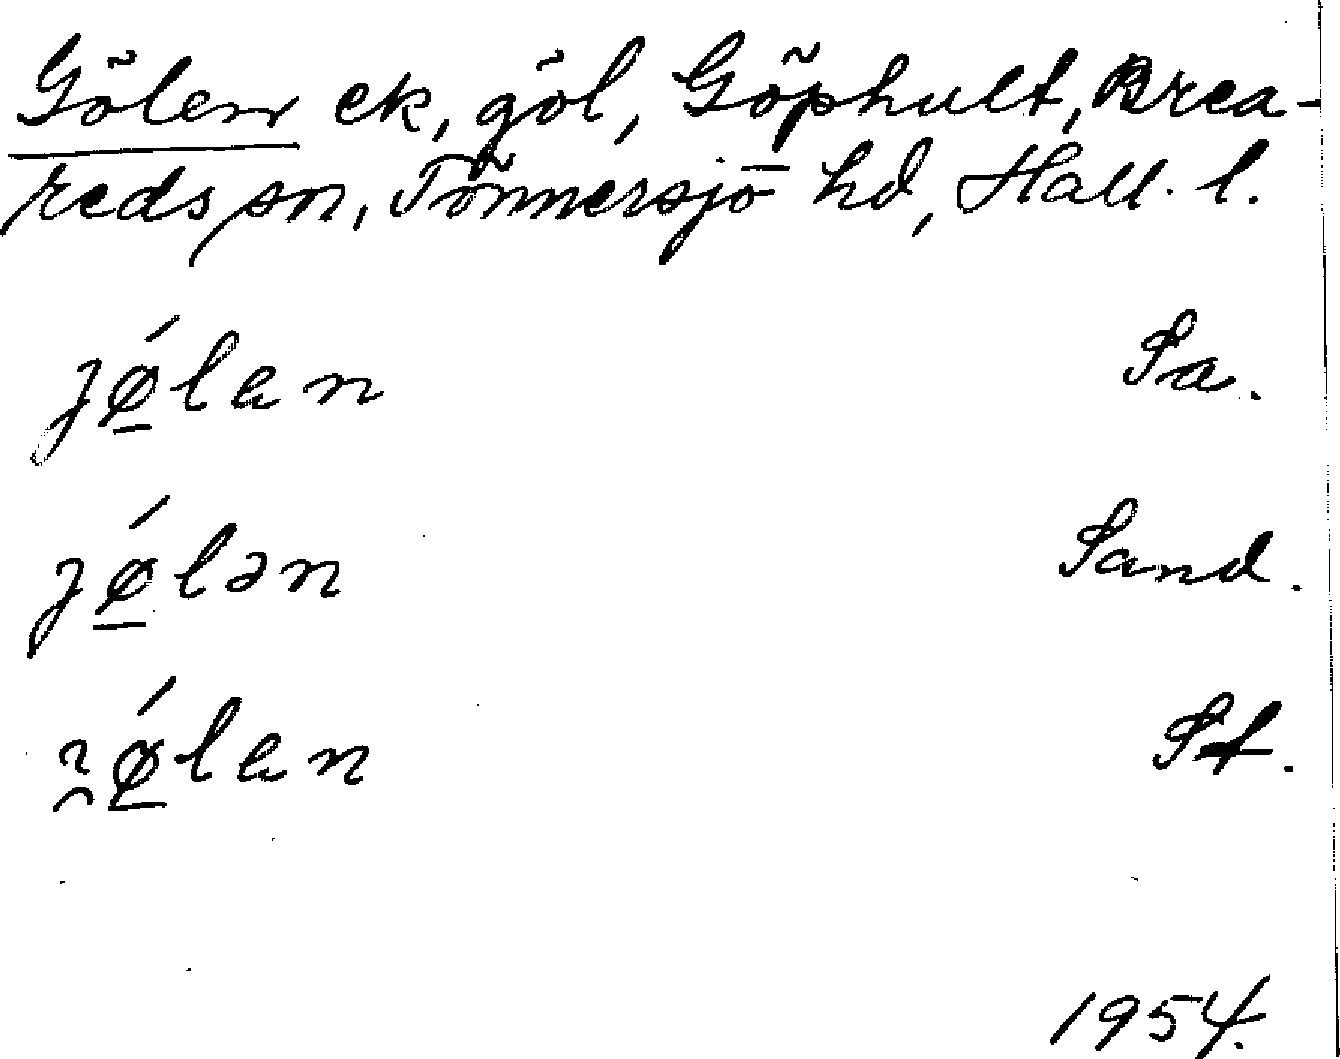 Gölen ek, göl, Göphult, Brea-
reds sn, Tönnersjö hd, Hall. l.
jǿ̲lan Sa.
jǿ̲lən Sand.
ǿ̲lan St.
1954.